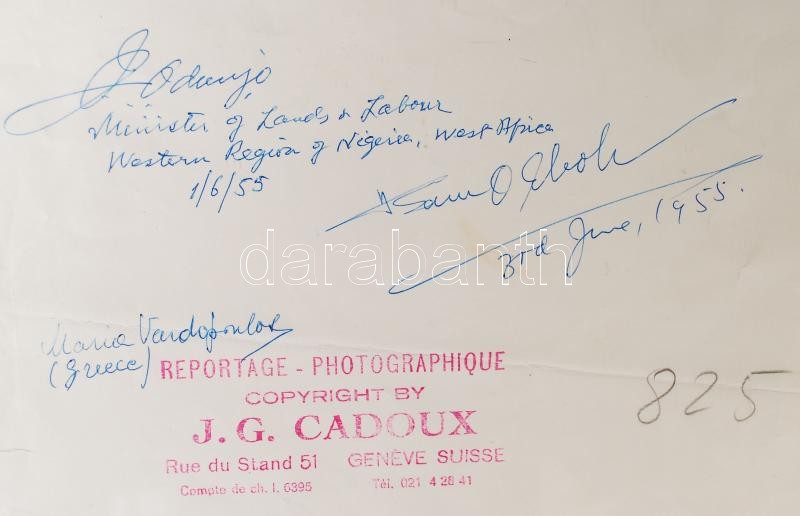 J Odunjo
Minister of Lands & Labour
Western Region of Nigeria, West Africa
1/6/55
Sam O Eboh
3rd June, 1955.
darabanth
Maria Vardopoulos
(Greece)
REPORTAGE - PHOTOGRAPHIQUE
COPYRIGHT BY
J. G. CADOUX
Rue du Stand 51 GENÈVE SUISSE
Compte de ch. I. 6395 Tél. 021 4 28 41
825